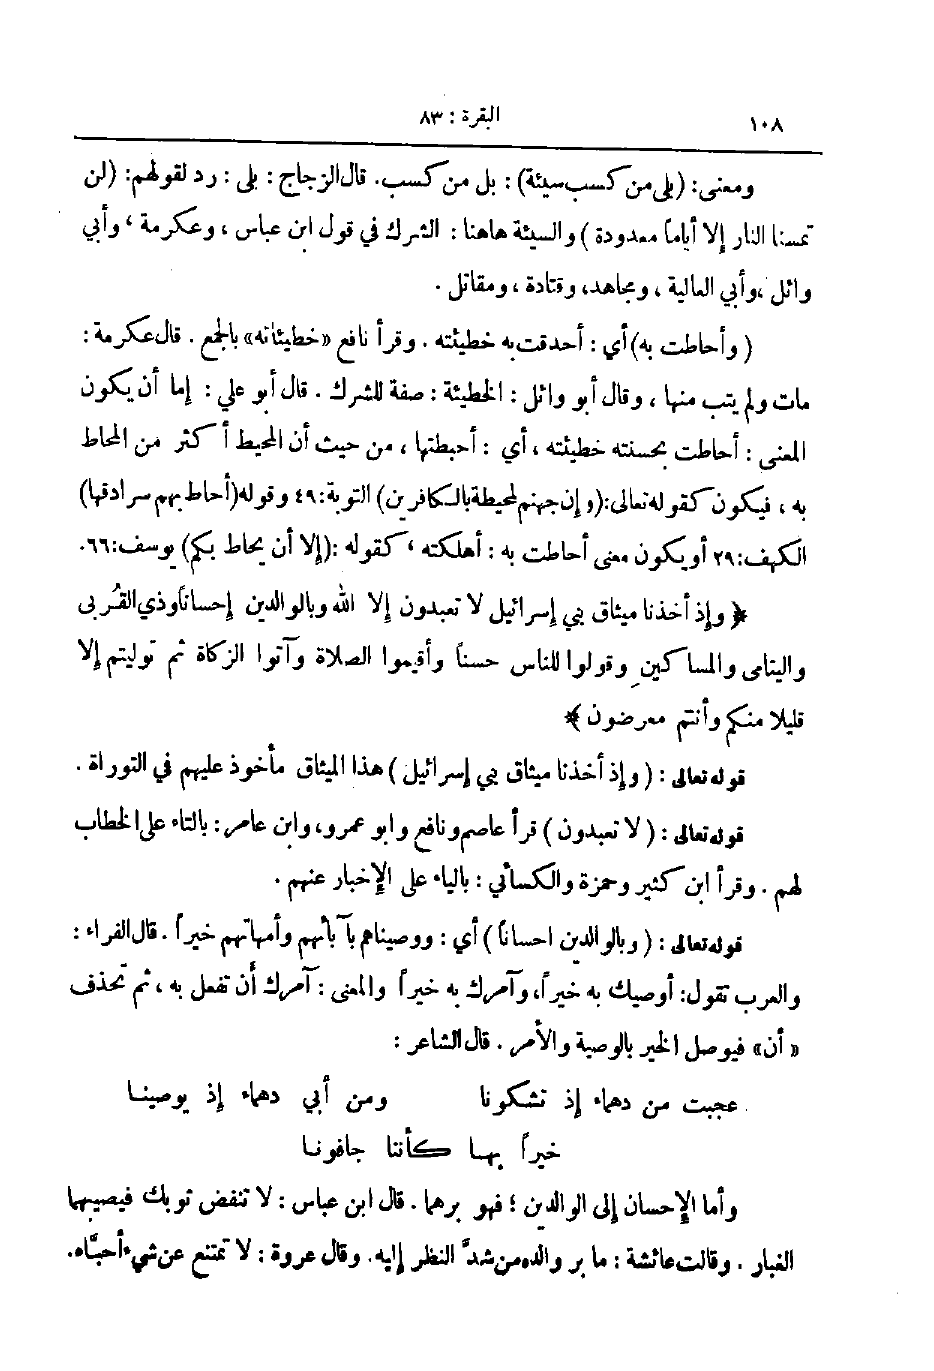 ١٠٨ البقرة : ٨٣
ومعنى: (بلى من كسب سيئة) : بل من كسب. قال الزجاج : بلى : رد لقولهم: (لن
تمسنا النار إلا أياماً معدودة ) والسيئة هاهنا : الشرك في قول ابن عباس ، وعكرمة ، وأبي
وائل ،وأبي العالية ، ومجاهد، وقتادة ، ومقاتل .
( وأحاطت به) أي : أحدقت به خطيئته . وقرأ نافع «خطيئاته» بالجمع . قال عكرمة :
مات ولم يتب منها ، وقال أبو وائل : الخطيئة : صفة للشرك . قال أبو علي : إما أن يكون
المعنى : أحاطت بحسنته خطيئته ، أي : أحبطتها ، من حيث أن المحيط أكثر من المحاط
به ، فيكون كقوله تعالى:(وإن جهنم لمحيطة بالكافرين) التوبة:٤٩ وقوله(أحاط بهم سرادقها)
الكهف:٢٩ أو يكون معنى أحاطت به : أهلكته ، كقوله :(إلا أن يحاط بكم) يوسف:٦٦.
﴿ وإذ أخذنا ميثاق بني إسرائيل لا تعبدون إلا الله وبالوالدين إحساناً وذي القُربى
واليتامى والمساكين وقولوا للناس حسناً وأقيموا الصلاة وآتوا الزكاة ثم توليتم إلا
قليلا منكم وأنتم معرضون ﴾
قوله تعالى : ( وإذ أخذنا ميثاق بني إسرائيل ) هذا الميثاق مأخوذ عليهم في التوراة .
قوله تعالى : ( لا تعبدون ) قرأ عاصم ونافع وابو عمرو، وابن عامر : بالتاء على الخطاب
لهم . وقرأ ابن كثير وحمزة والكسائي : بالياء على الإخبار عنهم .
قوله تعالى : ( وبالوالدين احساناً ) أي : ووصيناهم بآبائهم وأمهاتهم خيراً . قال الفراء :
والعرب تقول: أوصيك به خيراً، وآمرك به خيراً والمعنى : آمرك أن تفعل به ، ثم تحذف
« أن» فيوصل الخير بالوصية والأمر . قال الشاعر :
عجبت من دهماء إذ تشكونا ومن أبي دهماء إذ يوصينا
خيراً بها كأننا جافونا
وأما الإحسان إلى الوالدين ؛ فهو برهما . قال ابن عباس : لا تنفض ثوبك فيصيبهما
الغبار . وقالت عائشة : ما بر والده من شدَّ النظر إليه. وقال عروة : لا تمتنع عن شيء أحبَّاه.